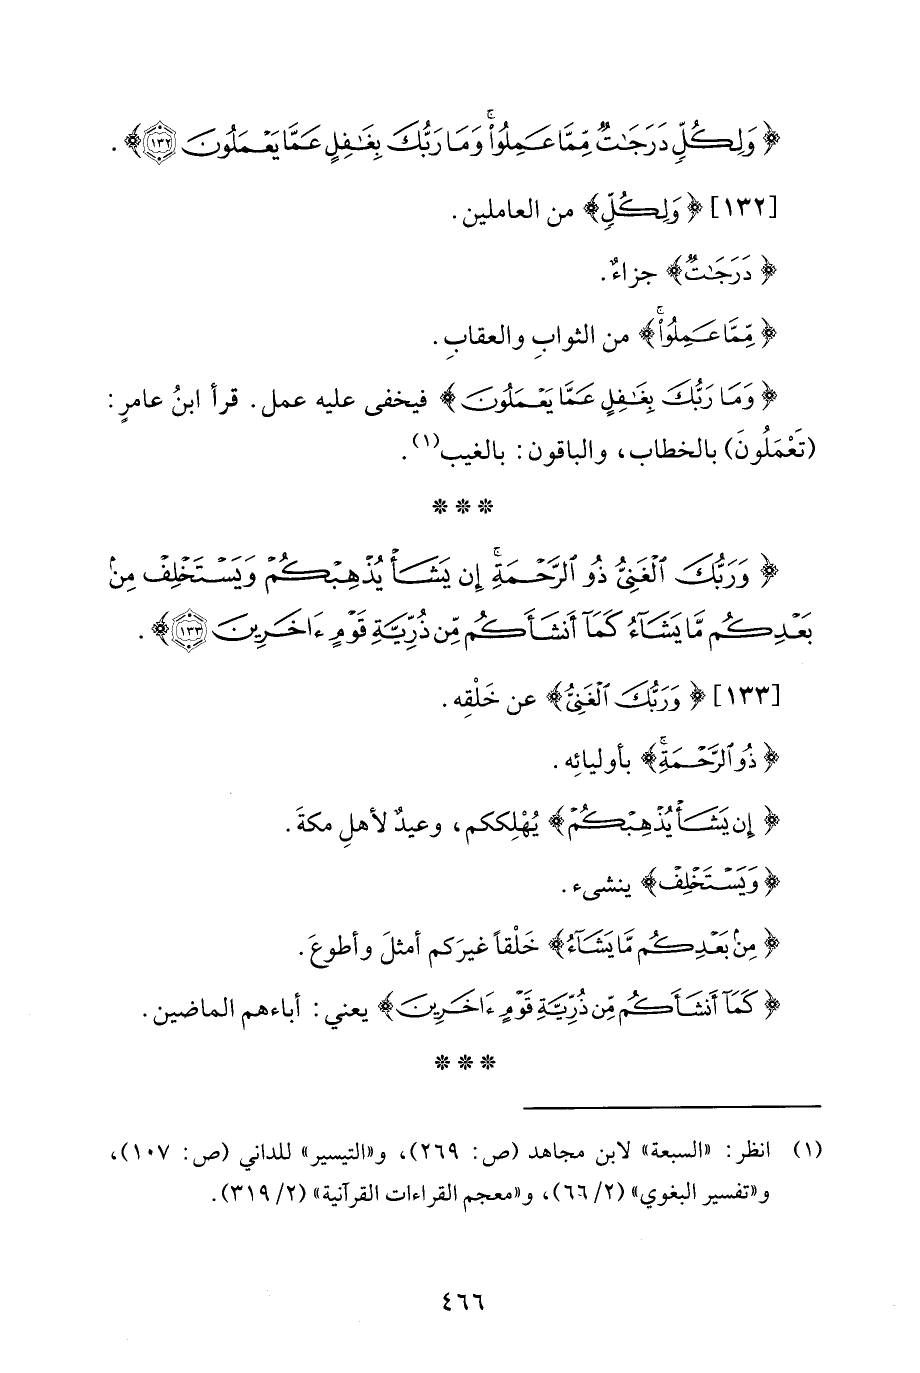 ﴿ وَلِكُلٍّ دَرَجَـٰتٌ مِّمَّا عَمِلُوا۟ ۚ وَمَا رَبُّكَ بِغَـٰفِلٍ عَمَّا يَعْمَلُونَ ١٣٢ ﴾ .
[١٣٢] ﴿ وَلِكُلٍّ ﴾ من العاملين .
﴿ دَرَجَـٰتٌ ﴾ جزاءٌ .
﴿ مِّمَّا عَمِلُوا۟ ۚ ﴾ من الثوابِ والعقابِ .
﴿ وَمَا رَبُّكَ بِغَـٰفِلٍ عَمَّا يَعْمَلُونَ ﴾ فيخفى عليه عمل . قرأ ابنُ عامرٍ :
(تَعْمَلُونَ) بالخطاب ، والباقون : بالغيب(١) .
* * *
﴿ وَرَبُّكَ ٱلْغَنِىُّ ذُو ٱلرَّحْمَةِ ۚ إِن يَشَأْ يُذْهِبْكُمْ وَيَسْتَخْلِفْ مِنۢ
بَعْدِكُم مَّا يَشَآءُ كَمَآ أَنشَأَكُم مِّن ذُرِّيَّةِ قَوْمٍ ءَاخَرِينَ ١٣٣ ﴾ .
[١٣٣] ﴿ وَرَبُّكَ ٱلْغَنِىُّ ﴾ عن خَلْقِه .
﴿ ذُو ٱلرَّحْمَةِ ۚ ﴾ بأوليائِه .
﴿ إِن يَشَأْ يُذْهِبْكُمْ ﴾ يُهْلِككم ، وعيدٌ لأهلِ مكةَ .
﴿ وَيَسْتَخْلِفْ ﴾ ينشىء .
﴿ مِنۢ بَعْدِكُم مَّا يَشَآءُ ﴾ خَلْقاً غيرَكم أمثلَ وأطوعَ .
﴿ كَمَآ أَنشَأَكُم مِّن ذُرِّيَّةِ قَوْمٍ ءَاخَرِينَ ﴾ يعني : أباءهم الماضين .
* * *
(١) انظر : «السبعة» لابن مجاهد (ص : ٢٦٩) ، و«التيسير» للداني (ص : ١٠٧) ،
و«تفسير البغوي» (٢/ ٦٦) ، و«معجم القراءات القرآنية» (٢/ ٣١٩) .
٤٦٦